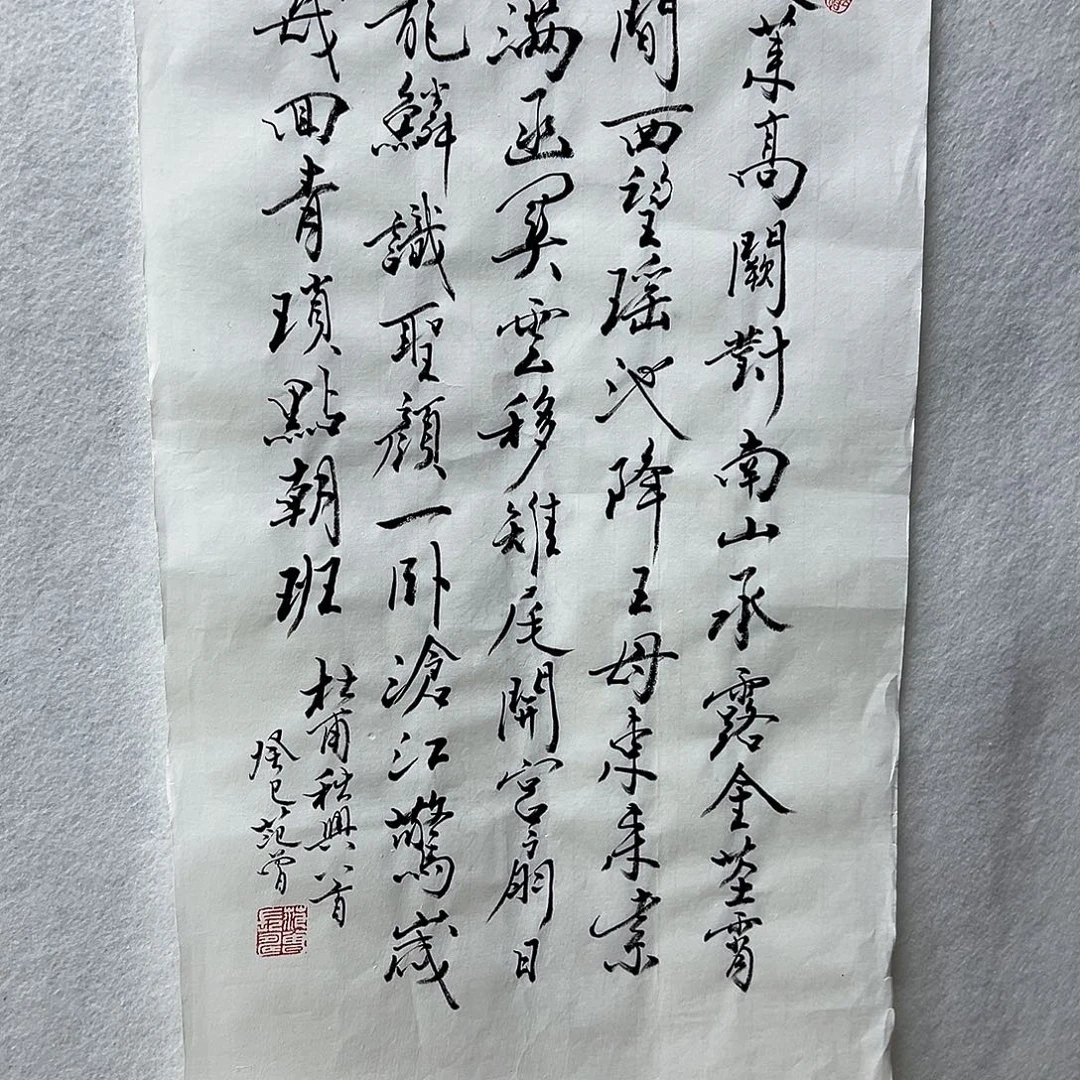 莱高闕對南山承露金莖霄
間西望瑶池降王母東来紫
滿函関雲移雉尾開宫扇日
龍鱗識聖顔一卧滄江驚歲
幾回青瑣點朝班
杜甫秋興八首
癸巳范曾